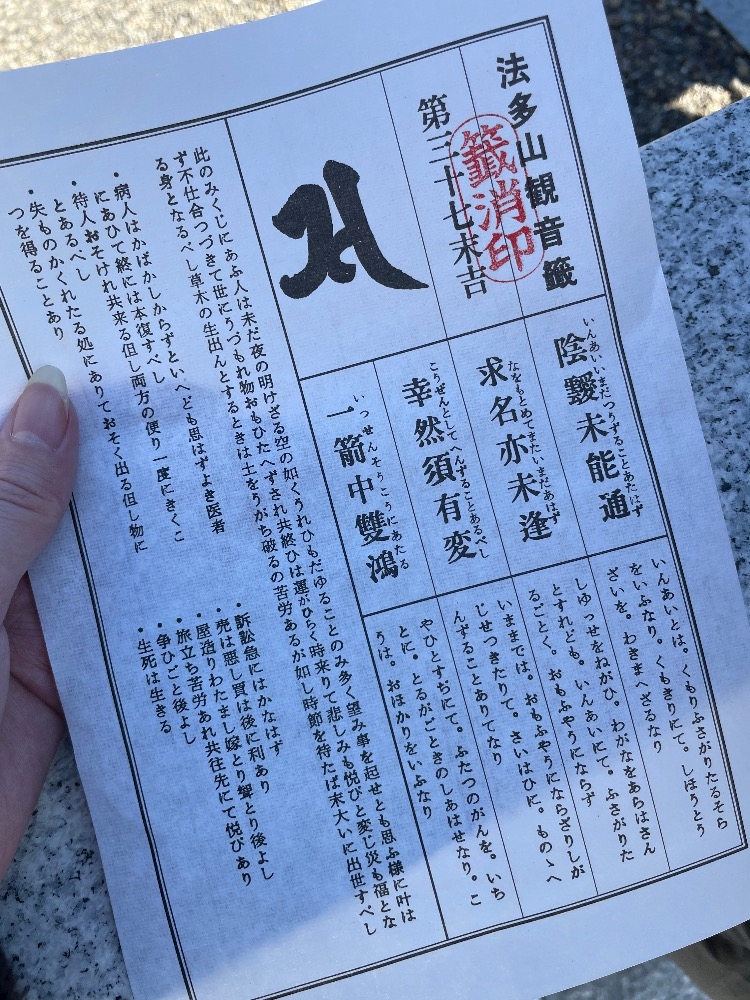 法多山観音籤
籤消印
第三十七末吉
陰靉未能通
いんあいいまだつうずることあたはず
求名亦未逢
なをもとめてまたいまだあはず
幸然須有変
こうぜんとしてへんずることあるべし
一箭中雙鴻
いっせんそうこうにあたる
いんあいとは。くもりふさがりたるそら
をいふなり。くもきりにて。しほうとう
ざいを。わきまへざるなり
しゆつせをねがひ。わがなをあらはさん
とすれども。いんあいにて。ふさがりた
るごとく。おもふやうにならず
いままでは。おもふやうにならざりしが
じせつきたりて。さいはひに。ものゝへ
んずることありてなり
やひとすぢにて。ふたつのがんを。いち
とに。とるがごときのしあはせなり。こ
うは。おほかりをいふなり
此のみくじにあふ人は未だ夜の明けざる空の如くうれひもだゆることのみ多く望み事を起せとも思ふ様に叶は
ず不仕合つづきて世にうづもれ物おもひたへずされ共終ひは運がひらく時来りて悲しみも悦びと変じ災も福とな
る身となるべし草木の生出んとするときは土をうがち破るの苦労あるが如し時節を待たば末大いに出世すべし
・病人はかばかしからずといへども思はずよき医者
にあひて終には本復すべし
・待人おそけれ共来る但し両方の便り一度にきくこ
とあるべし
・失ものかくれたる処にありておそく出る但し物に
つを得ることあり
・訴訟急にはかなはず
・売は悪し買は後に利あり
・屋造りわたまし嫁とり聟とり後よし
・旅立ち苦労あれ共往先にて悦びあり
・争ひごと後よし
・生死は生きる